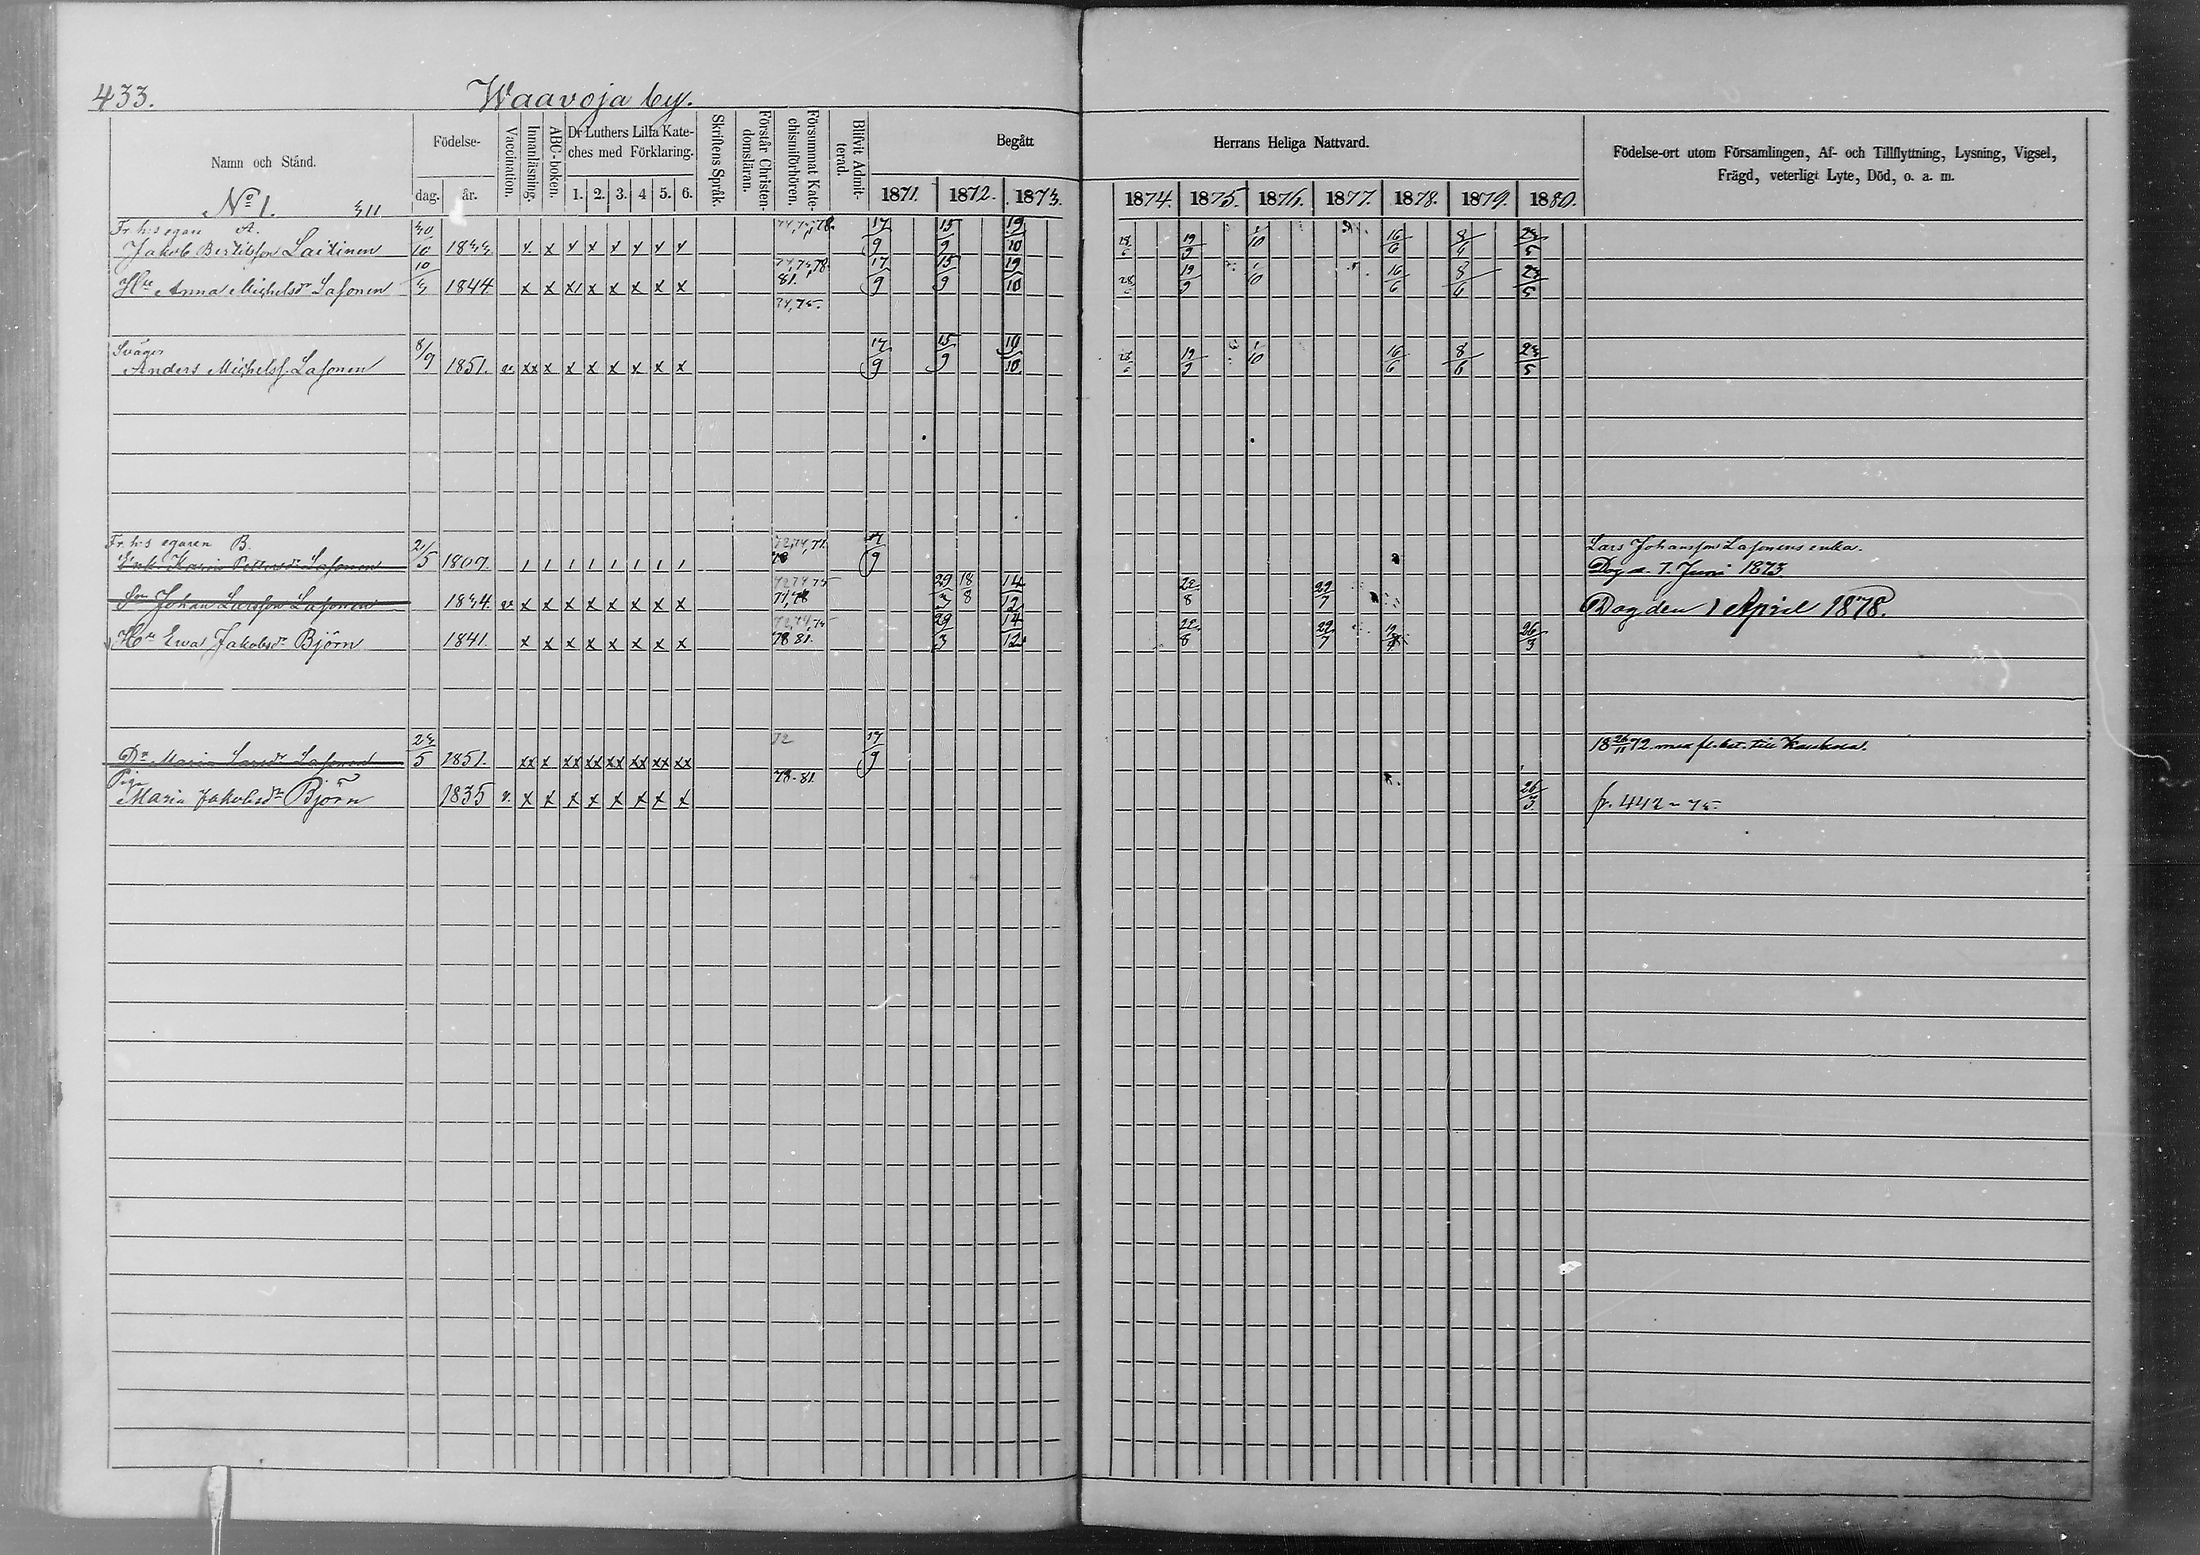 433.
Waavoja by.
Namn och Stånd.
Födelse-
dag.
år.
Vaccination.
Innanläsning.
ABC-boken.
Dr Luthers Lilla Kate-
ches med Förklaring.
1. 2. 3. 4 5. 6.
Skriftens Språk.
Förstår Christen-
domsläran.
Försummat Kate-
chismiförhören.
Blifvit Admit-
terad.
Begått
1871. 1872. 1873.
Herrans Heliga Nattvard.
1874. 1875. 1876. 1877. 1878. 1879. 1880.
Födelse-ort utom Församlingen, Af- och Tillflyttning, Lysning, Vigsel,
Frägd, veterligt Lyte, Död, o. a. m.
No 1.
Fr. h:s egare A.
Jakob Bertilsson Laitinen x x x x x x x x 17/9 15/9 19/10 19/9 1/10 16/6 8/6 23/5
74, 75, 78.
Hu Anna Michelsdr Lasonen 1844 x x x x x x x 81. 17/9 15/9 19/10 28 19/9 1/10 16/6 8/6 23/5
74, 75.
Svåger
Anders Michelss. Lasonen 8/9 1851. v. xx x x x x x x x 17/9 15/9 19/10 19/9 1/10 16/6 8/6 23/5
Fr. h:s egaren B.
Enk. Karin Pettersdr Lasonen 2/5 1809 1 1 1 1 1 1 1 1 17/9
Lars Johansson Lasonens enka.
Dog d. 7. Juni 1873
Son Johan Larsson Lasonen 1834. v. x x x x x x x x 29/3 18/8 14/12 22/8 29/7 Dog den 1 April 1878.
Hu Ewa Jakobsdr Björn 1841. x x x x x x x x 78 81. 29/3 14/12 22/8 29/7 26/3
Dr Maria Larsdr Lasonen 23/5 1851. xx x xx xx xx xx xx xx 72 17/9 18 26/11 72 med fl. bet. till
Piga
Maria Jakobsdr Björn 1835 v. x x x x x x x x 78-81. 26/3 fr. 442 - 75.